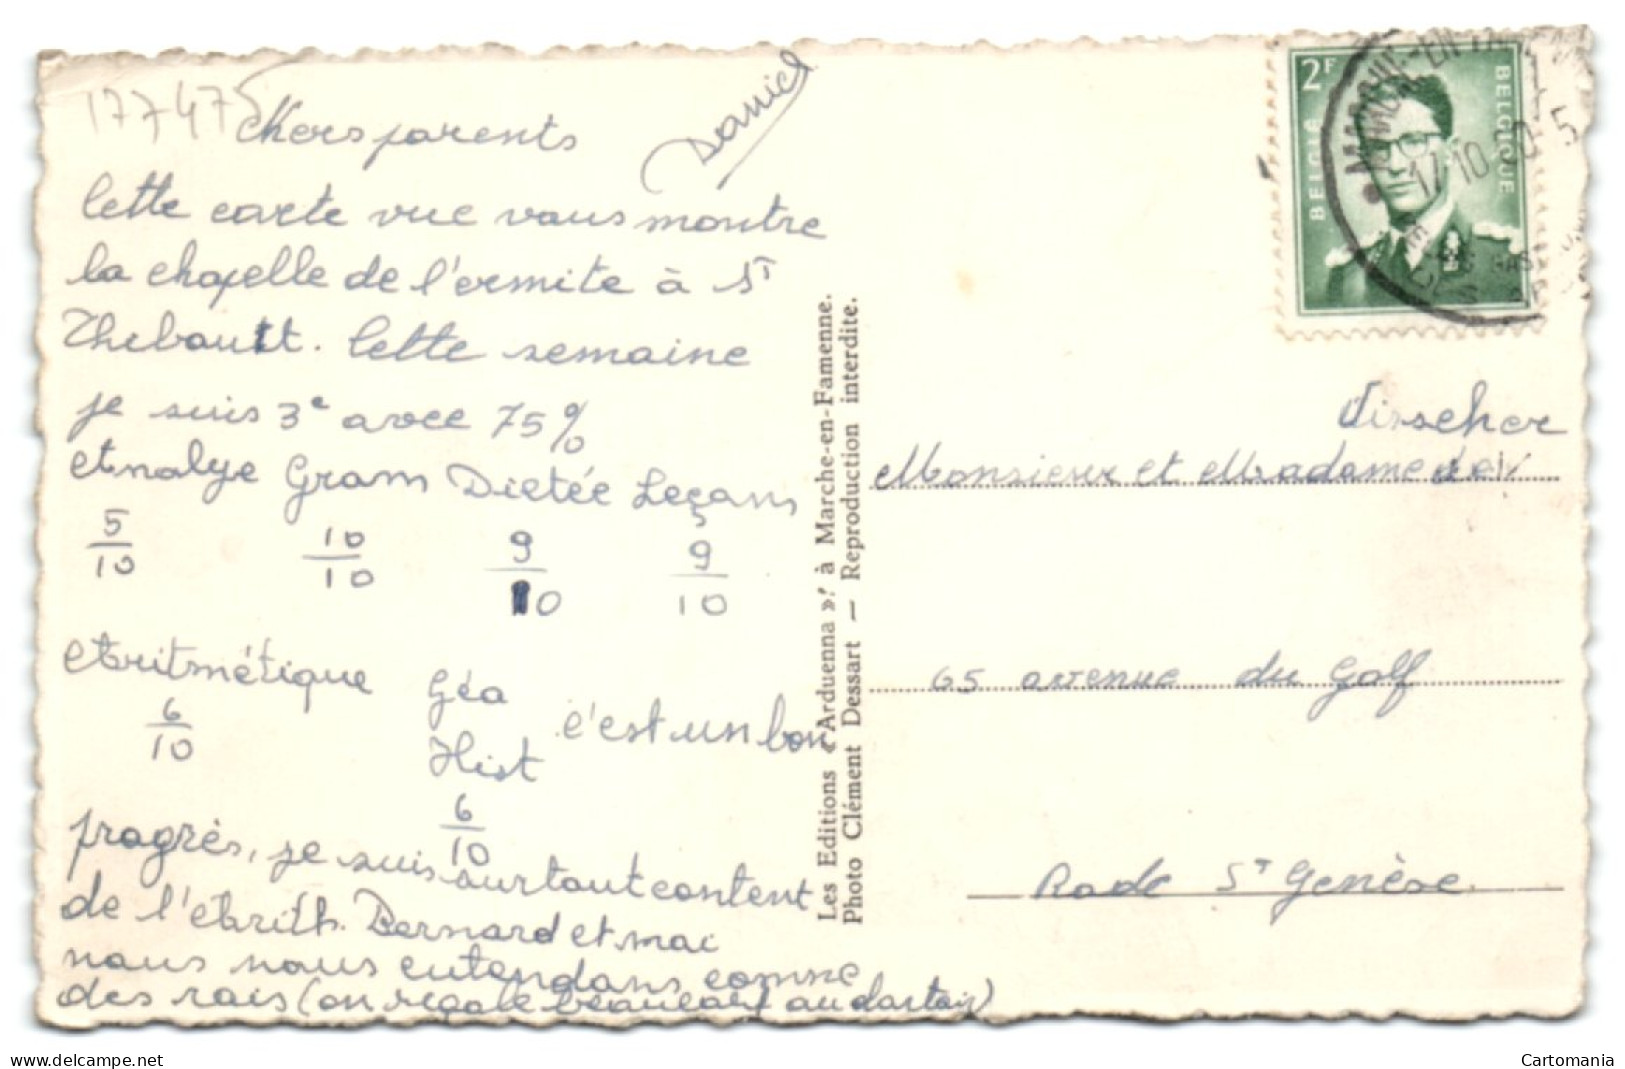 177475
Chers parents
Daniel
Cette carte vue vous montre
la chapelle de l'ermite à St
Thibautt. Cette semaine
je suis 3e avec 75%
Analye Gram Dictée Leçons
5/10 10/10 9/10 9/10
Aritmétique Géo
Hist c'est un bon
6/10 6/10
progrès, je suis surtout content
de l'Arith. Bernard et moi
nous nous entendons comme
des rois (on rigole beaucoup au dortoir)
Les Editions « Arduenna » à Marche-en-Famenne.
Photo Clément Dessart — Reproduction interdite.
2F
BELGIE
BELGIQUE
MARCHE-EN
17-10
Visscher
Monsieur et Madame de
65 avenue du Golf
Rode St Genèse
www.delcampe.net
Cartomania